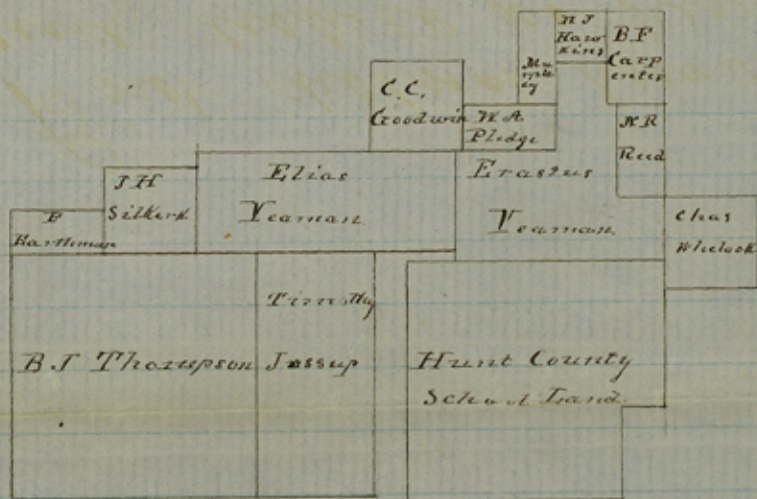 N J
Haw
kins
B F
Carp
enter
Mu
rph
ey
C. C.
Goodwin
W A
Pledge
N R
Reed
J H
Silkerk
Elias
Yeaman
Erastus
Yeaman
Chas
Whelock
F
Barthman
Timothy
Jessup
B J Thompson
Hunt County
School Land